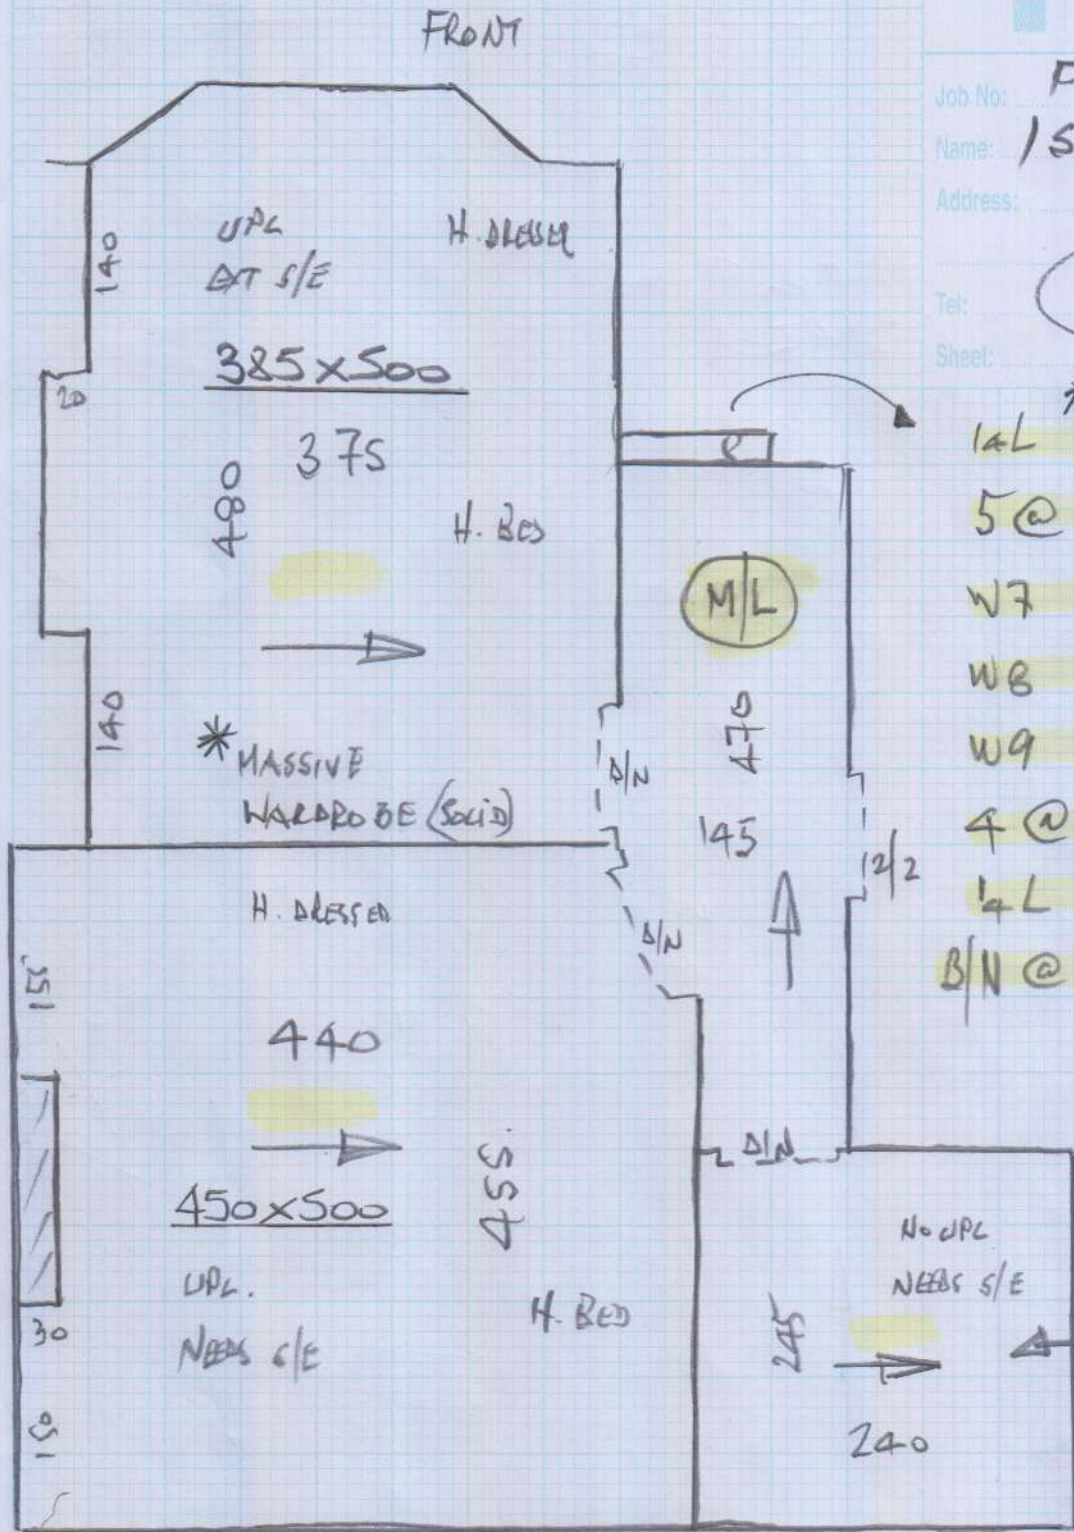 FRONT
Job No:
Name:
Address:
Tel:
Sheet:
140
UPL
EXT S/E
H. DRESSER
385 x 500
20
375
480
H. BED
M/L
140
* MASSIVE
WARDROBE (SOLID)
D/N
470
145
2/2
¼L
5 @
W7
W8
W9
4 @
¼L
B/N @
H. DRESSER
D/N
440
455
450 x 500
UPL.
NEEDS S/E
H. BED
30
D/N
NO UPL
NEEDS S/E
245
240